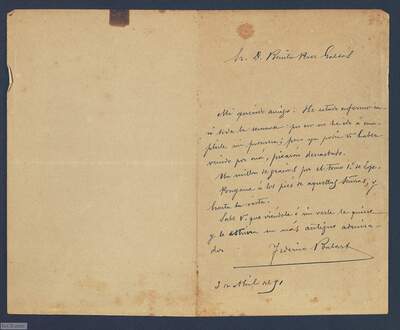 Sr. D. Benito Perez Galdós
Mi querido amigo: He estado enfermo ca-
si toda la semana: por eso no he ido á cum-
plirle mi promesa; pero ya podía V. haber
venido por acá, picarón
Un millon de gracias por el tomo 1º de
Póngame á los piés de aquellas Señoras, y
hasta la vista.
Sabe V. que viéndole ó sin verle le quiere
y le su más antiguo admira-
dor
Federico Balart
3 de Abril de 91